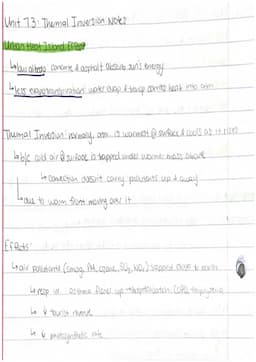 Unit 7.3: Thermal Inversion Notes
Urban Heat Island Effect
↳ low albedo concrete & asphalt absorb sun's energy
↳ less evapotranspiration: water evap & transp carries heat into atm
Thermal Inversion: normally, atm. is warmest @ surface & cools as it rises
↳ b/c cold air @ surface is trapped under warmer mass above
↳ convection doesn't carry pollutants up & away
↳ due to warm front moving over it
Effects:
↳ air pollutants (smog, PM, ozone, SO₂, NOₓ) trapped closer to earth
↳ resp irr asthma flares up → hospitalization
↳ ↓ tourist revenue
↳ ↓ photosynthetic rate